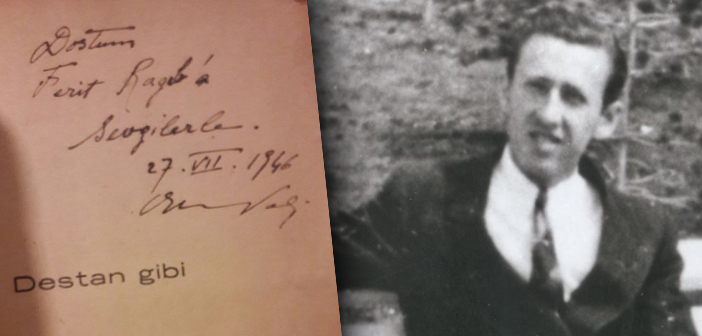 Dostum
Ferit Ragıb'a
Sevgilerle.
27.VII.1946
Orhan Veli
Destan gibi